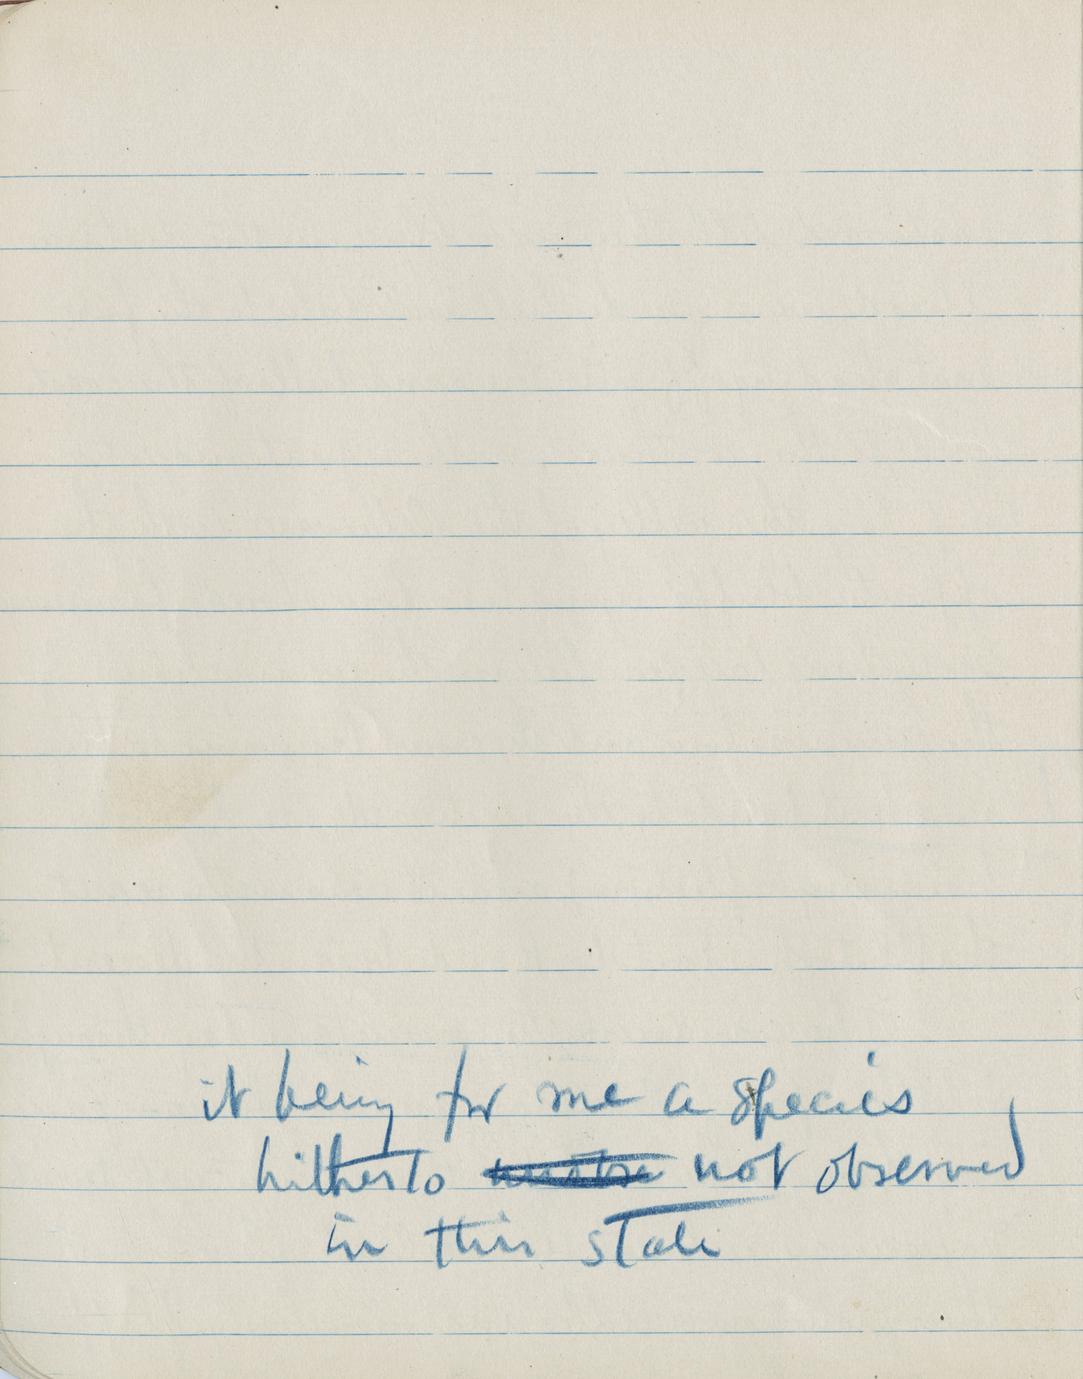 it being for me a species
hitherto not observed
in this state